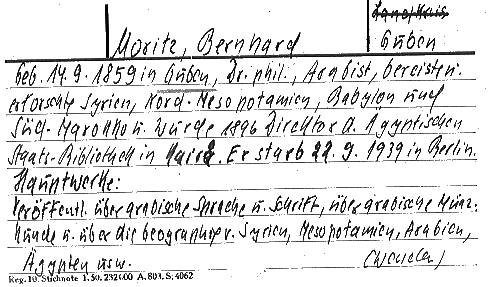 Land/Kreis
Moritz, Bernhard
Guben
Geb. 14.9.1859 in Guben, Dr. phil., Arabist, bereiste u.
erforschte Syrien, Nord-Mesopotamien, Babylon und
Süd-Marokko u. wurde 1896 Direktor d. Ägyptischen
Staats-Bibliothek in Kairo. Er starb 22.9.1939 in Berlin.
Hauptwerke:
Veröffentl. über arabische Sprache u. Schrift, über arabische Münz-
kunde u. über die Geographie v. Syrien, Mesopotamien, Arabien,
Ägypten usw.
Reg. 10. Suchnote 1.50. 232/00 A. 803. S. 4062